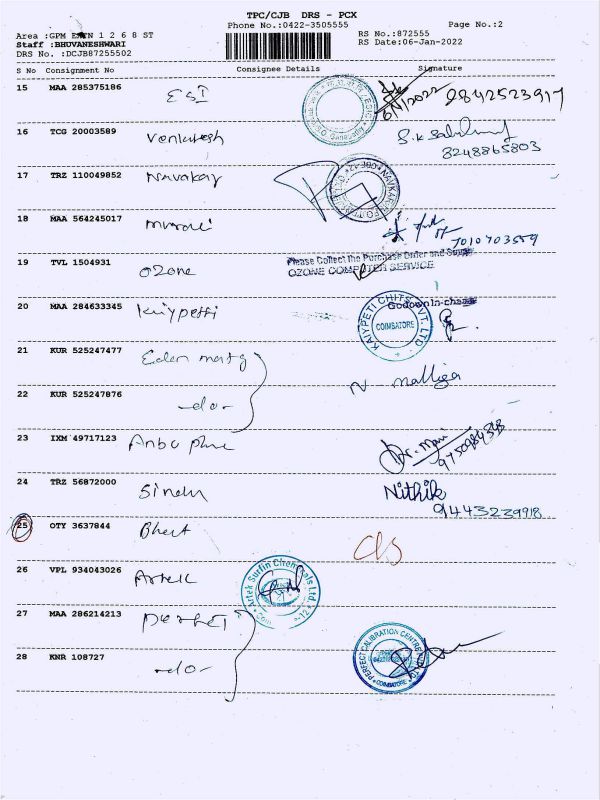 TPC/CJB DRS - PCX
Phone No.:0422-3505555 Page No.:2
Area :GPM EXTN 1 2 6 8 ST RS No.:872555
Staff :BHUVANESHWARI RS Date:06-Jan-2022
DRS No. :DCJB87255502
S No Consignment No Consignee Details Signature
15 MAA 285375186 ESI 6/1/2022 9842523917
16 TCG 20003589 Venkatesh S.K
8248865803
17 TRZ 110049852 Navakar
18 MAA 564245017
7010703559
19 TVL 1504931 Ozone Please Collect the Purchase Order and
OZONE COMPUTER SERVICE
20 MAA 284633345 Kaiypetti KAIYPETI CHITS PVT. LTD COIMBATORE Godown In-charge
21 KUR 525247477 Eden
N. Malliga
22 KUR 525247876 -do-
23 IXM 49717123 Anbu
24 TRZ 56872000 Sindu Nithik
9443239918
25 OTY 3637844 Bhert
26 VPL 934043026 Artek Artek Surfin Chemicals Ltd.
27 MAA 286214213 Perfect
28 KNR 108727 -do- PERFECT CALIBRATION CENTRE COIMBATORE